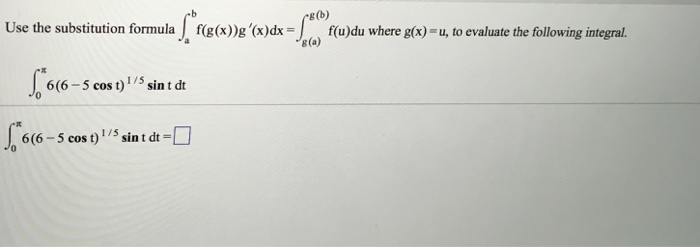 Use the substitution formula ∫_a^b f(g(x))g'(x)dx = ∫_{g(a)}^{g(b)} f(u)du where g(x)=u, to evaluate the following integral.
∫_0^π 6(6 − 5 cos t)^{1/5} sin t dt
∫_0^π 6(6 − 5 cos t)^{1/5} sin t dt = □